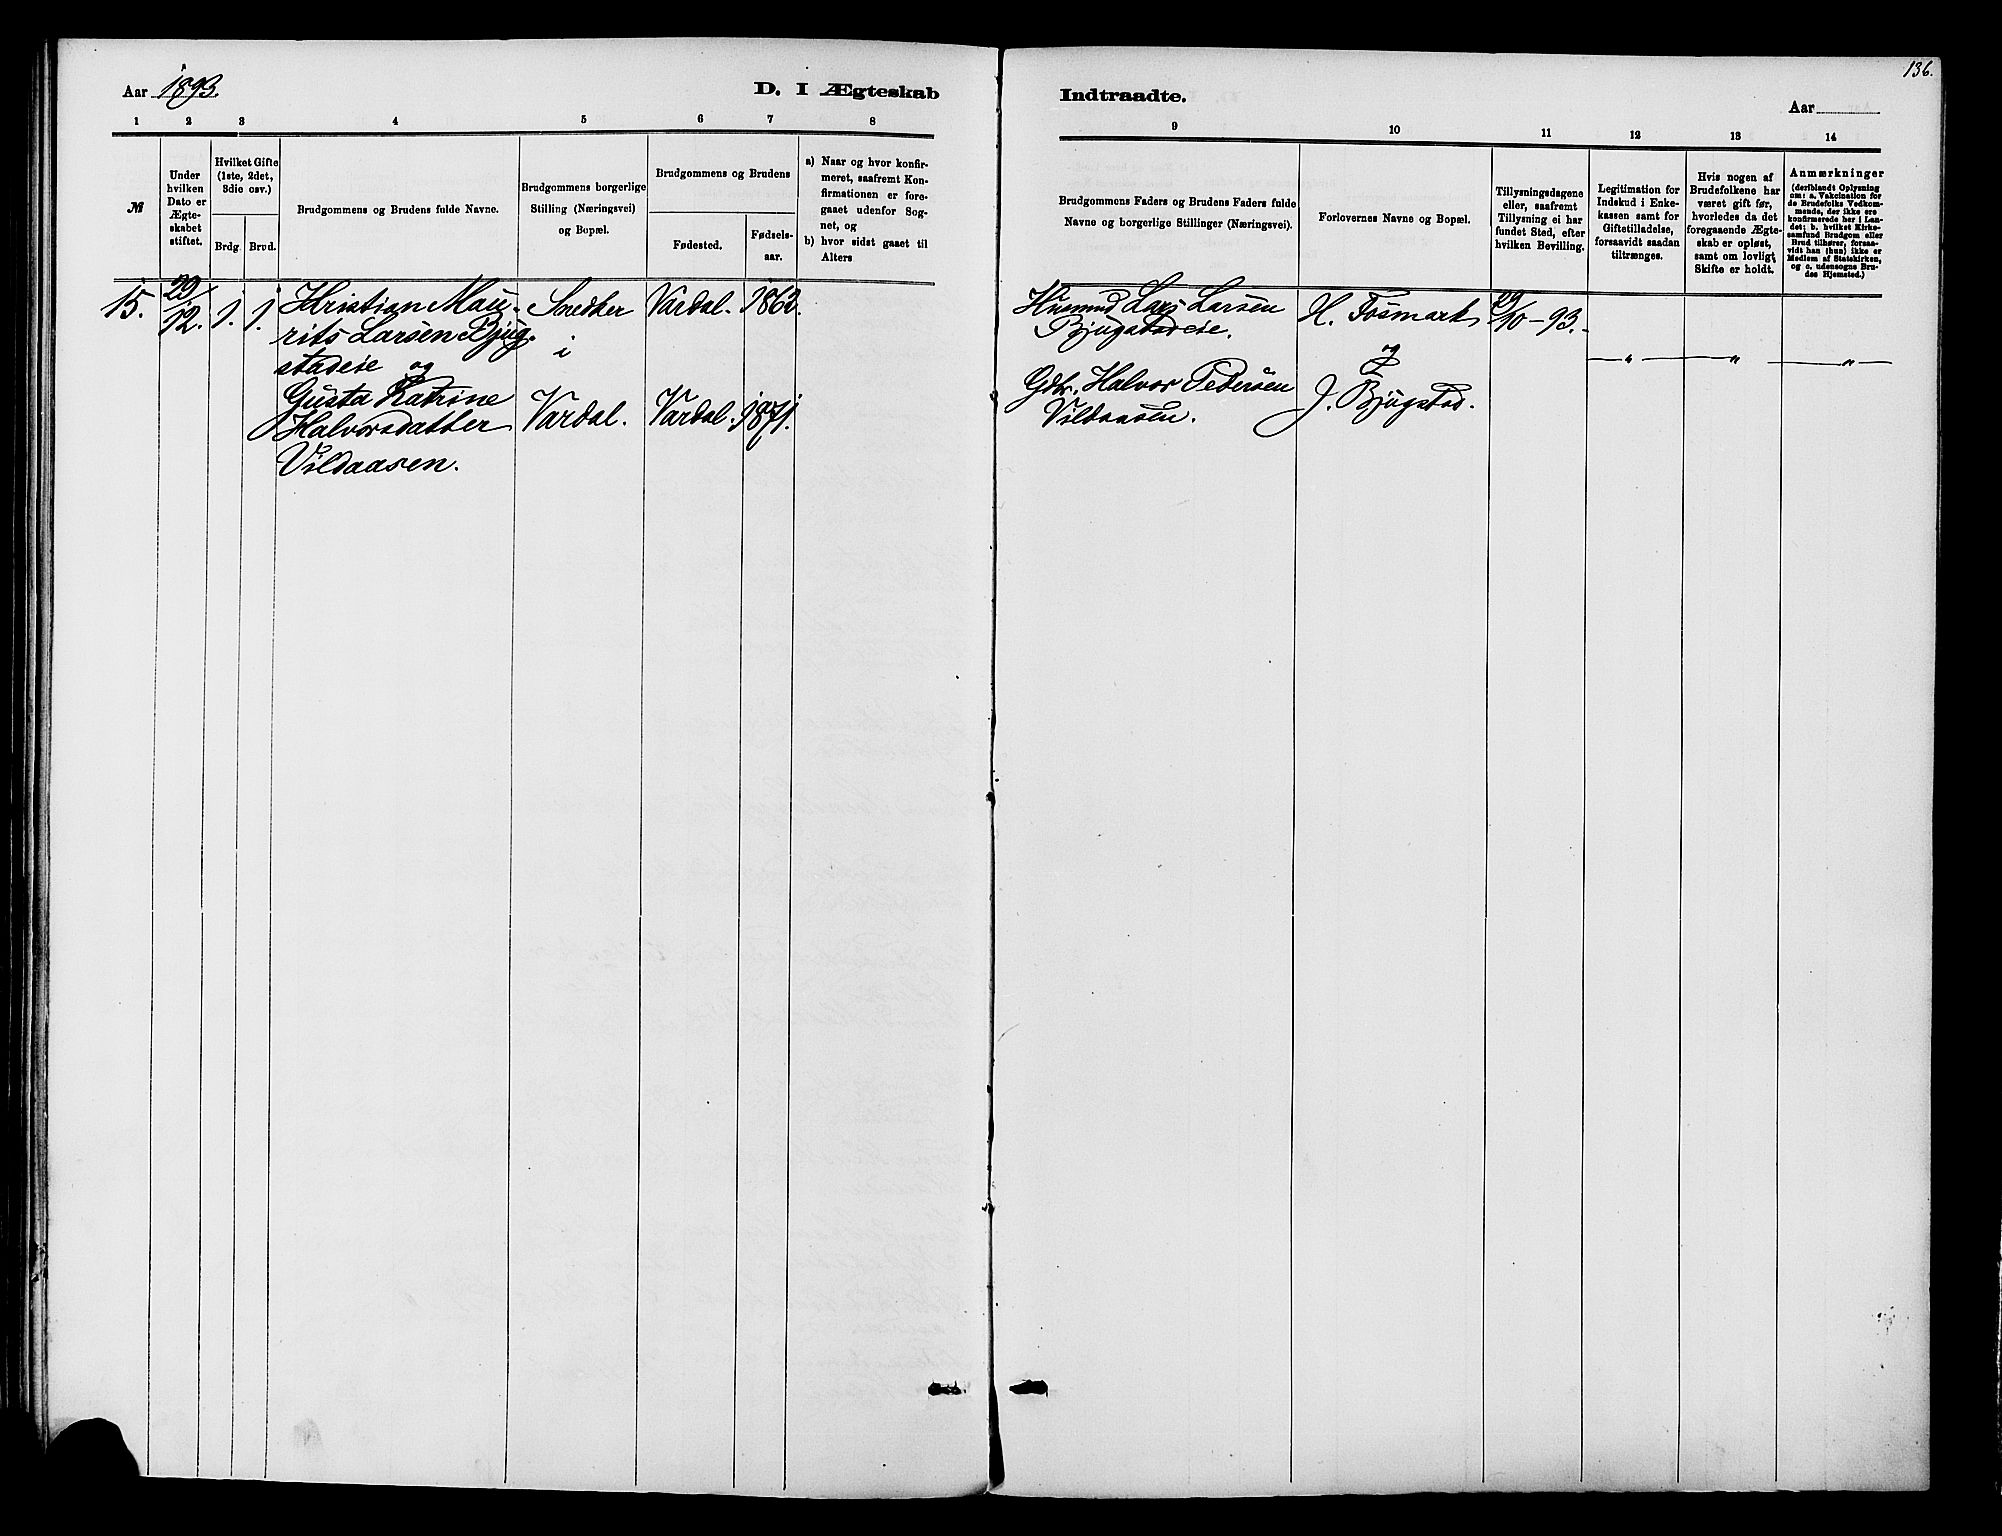 136.
Aar 1893.
D. I Ægteskab
Indtraadte.
Aar
1 2 3 4 5 6 7 8
9 10 11 12 13 14
№
Under
hvilken
Dato er
Ægte-
skabet
stiftet.
Hvilket Gifte
(1ste, 2det,
3die osv.)
Brdg. Brud.
Brudgommens og Brudens fulde Navne.
Brudgommens borgerlige
Stilling (Næringsvei)
og Bopæl.
Brudgommens og Brudens
Fødested.
Fødsels-
aar.
a) Naar og hvor konfir-
meret, saafremt Kon-
firmationen er fore-
gaaet udenfor Sog-
net, og
b) hvor sidst gaaet til
Alters
Brudgommens Faders og Brudens Faders fulde
Navne og borgerlige Stillinger (Næringsvei).
Forlovernes Navne og Bopæl.
Tillysningsdagene
eller, saafremt
Tillysning ei har
fundet Sted, efter
hvilken Bevilling.
Legitimation for
Indskud i Enke-
kassen samt for
Giftetilladelse,
forsaavidt saadan
tiltrænges.
Hvis nogen af
Brudefolkene har
været gift før,
hvorledes da det
foregaaende Ægte-
skab er opløst,
samt om lovligt
Skifte er holdt.
Anmærkninger
(deriblandt Oplysning
om: a. Vakcination for
de Brudefolks Vedkom-
mende, der ikke ere
konfirmerede her i Lan-
det; b. hvilket Kirke-
samfund Brudgom eller
Brud tilhører, forsaa-
vidt han (hun) ikke er
Medlem af Statskirken,
og c. udensogns Bru-
des Hjemsted.)
15.
29/12.
1. 1.
Kristian Mau-
rits Larsen Bjug-
stadeie og
Gusta Katrine
Halvorsdatter
Vildaasen.
Snedker
i
Vardal.
Vardal. 1863.
Vardal. 1871.
Husmd Lars Larsen
Bjugstadeie.
Gdbr. Halvor Pedersen
Vildaasen.
H. Fosmark
og
J. Bjugstad.
29/10-93.
— " — " — " —